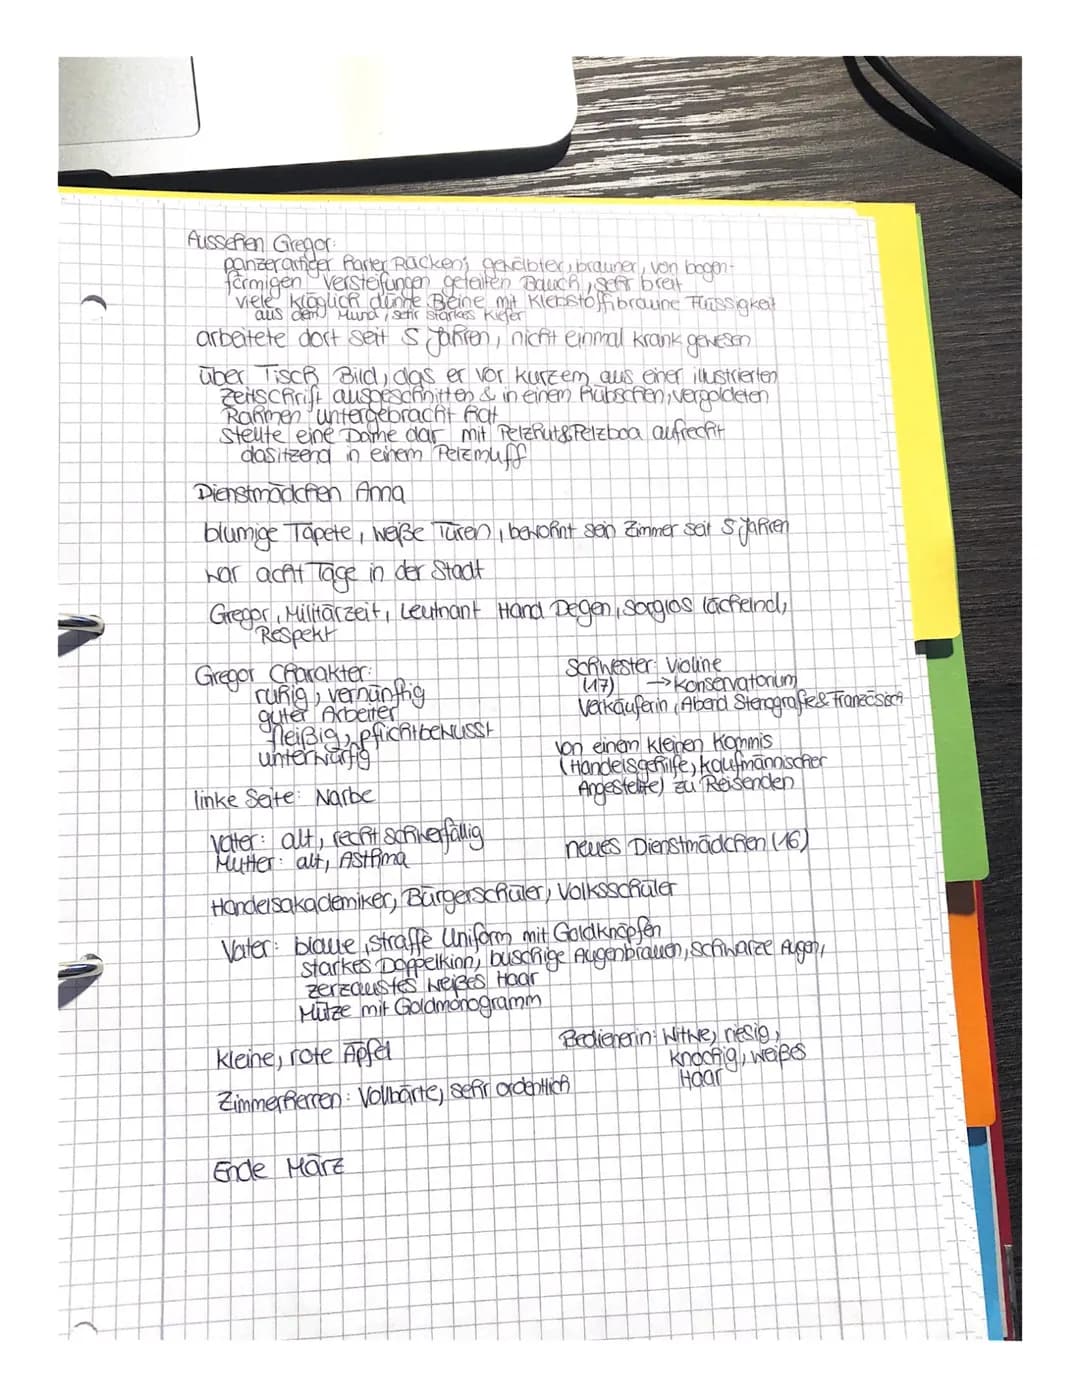 Aussehen Gregor:
panzerartiger harter Rücken; gewölbter, brauner, von bogen-
förmigen Versteifungen geteilten Bauch, sehr breit
viele kläglich dünne Beine mit Klebstoff; braune Flüssigkeit
aus dem Mund, sehr starkes Kiefer
arbeitete dort seit 5 Jahren, nicht einmal krank gewesen
über Tisch Bild, das er vor kurzem aus einer illustrierten
Zeitschrift ausgeschnitten & in einem hübschen, vergoldeten
Rahmen untergebracht hat
stellte eine Dame dar mit Pelzhut & Pelzboa aufrecht
dasitzend in einem Pelzmuff
Dienstmädchen Anna
blumige Tapete, weiße Türen, bewohnt sein Zimmer seit 5 Jahren
war acht Tage in der Stadt
Gregor, Militärzeit, Leutnant Hand Degen, sorglos lächelnd,
Respekt
Gregor Charakter:
ruhig, vernünftig
guter Arbeiter
fleißig, pflichtbewusst
unterwürfig
Schwester: Violine
(17) → Konservatorium
Verkäuferin, Abend Stenografie & Französisch
von einem kleinen Kommis
(Handelsgehilfe, kaufmännischer
Angestellte) zu Reisenden
linke Seite: Narbe
Vater: alt, recht schwerfällig
Mutter: alt, Asthma
neues Dienstmädchen (16)
Handelsakademiker, Bürgerschüler, Volksschüler
Vater: blaue, straffe Uniform mit Goldknöpfen
starkes Doppelkinn, buschige Augenbrauen, schwarze Augen,
zerzaustes weißes Haar
Mütze mit Goldmonogramm
kleine, rote Äpfel
Bedienerin: Witwe, riesig,
knochig, weißes
Haar
Zimmerherren: Vollbärte, sehr ordentlich
Ende März